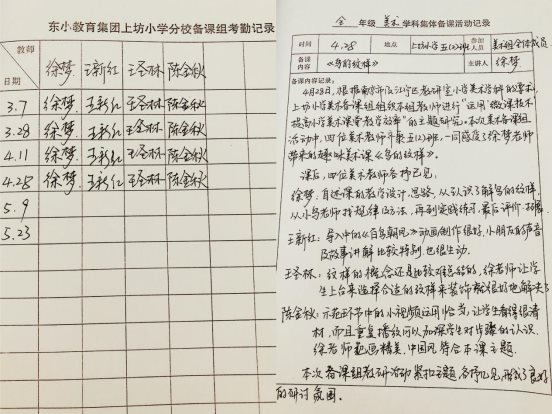 东小教育集团上坊小学分校备课组考勤记录
教师
日期
徐梦 王新红 王圣林 陈金秋
3.7 徐梦 王新红 王圣林 陈金秋
3.28 徐梦 王新红 王圣林 陈金秋
4.11 徐梦 王新红 王圣林 陈金秋
4.28 徐梦 王新红 王圣林 陈金秋
5.9
5.23
全 年级 美术 学科集体备课活动记录
时间 4.28 地点 上坊小学五(2)班 参加人员 美术组全体成员
备课内容 《鸟的纹样》 主讲人 徐梦
备课内容记录:
4月28日,根据南京市及江宁区教研室小学美术学科的要求,
上坊小学美术备课组组织本组教师进行“运用微课技术
提高小学美术课堂教学效率”的主题研究。本次美术备课组
活动中,四位美术教师齐聚五(2)班,一同感受了徐梦老师
带来的趣味美术课《鸟的纹样》。
课后,四位美术教师各抒己见:
徐梦:自述课的教学设计,思路,从认识了解鸟的纹样,
从小鸟身上找规律及方法,再到实践练习,最后评价、拓展
王新红:导入中的《百鸟朝凤》动画制作很好,小朋友的声音
及故事讲解比较特别,也很生动.
王圣林:纹样的概念还是比较难总结的,徐老师让学
生上台来选择合适的纹样来装饰
陈金秋:示范环节中的小视频运用恰当,让学生看得很清
楚,而且重复播放可以加深学生对步骤的认识.
徐老师范画精美,中国风符合本课主题.
本次备课组教研活动紧扣主题,各抒己见,形成了良好
的研讨氛围.